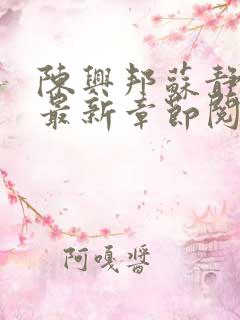 陳興邦蘇靜
最新章節閱
阿嘎醬